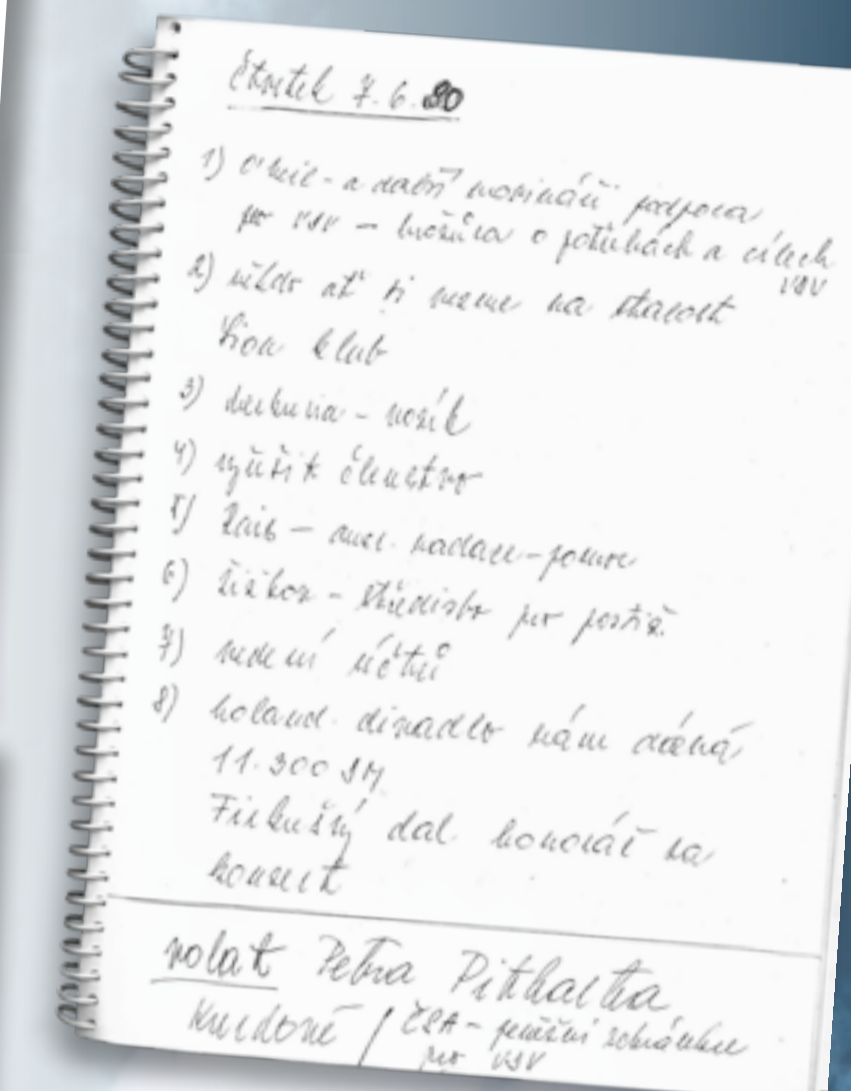 Čtvrtek 7.6.90
1) O'Neil - a další novináři podpora
pro VDV - brožůra o potřebách a cílech
VDV
2) někdo ať si vezme na starost
Lion klub
3) - vozík
4) využít členstvo
5) - amer. nadace - pomoc
6) Žižkov - středisko pro postiž.
7) vedení účtů
8) holand. divadlo nám dává
11.300 DM
Firkušný dal honorář za
koncert
volat Petra Pitharta
Kurdové / ČSA - peněžní schránkce
pro VDV